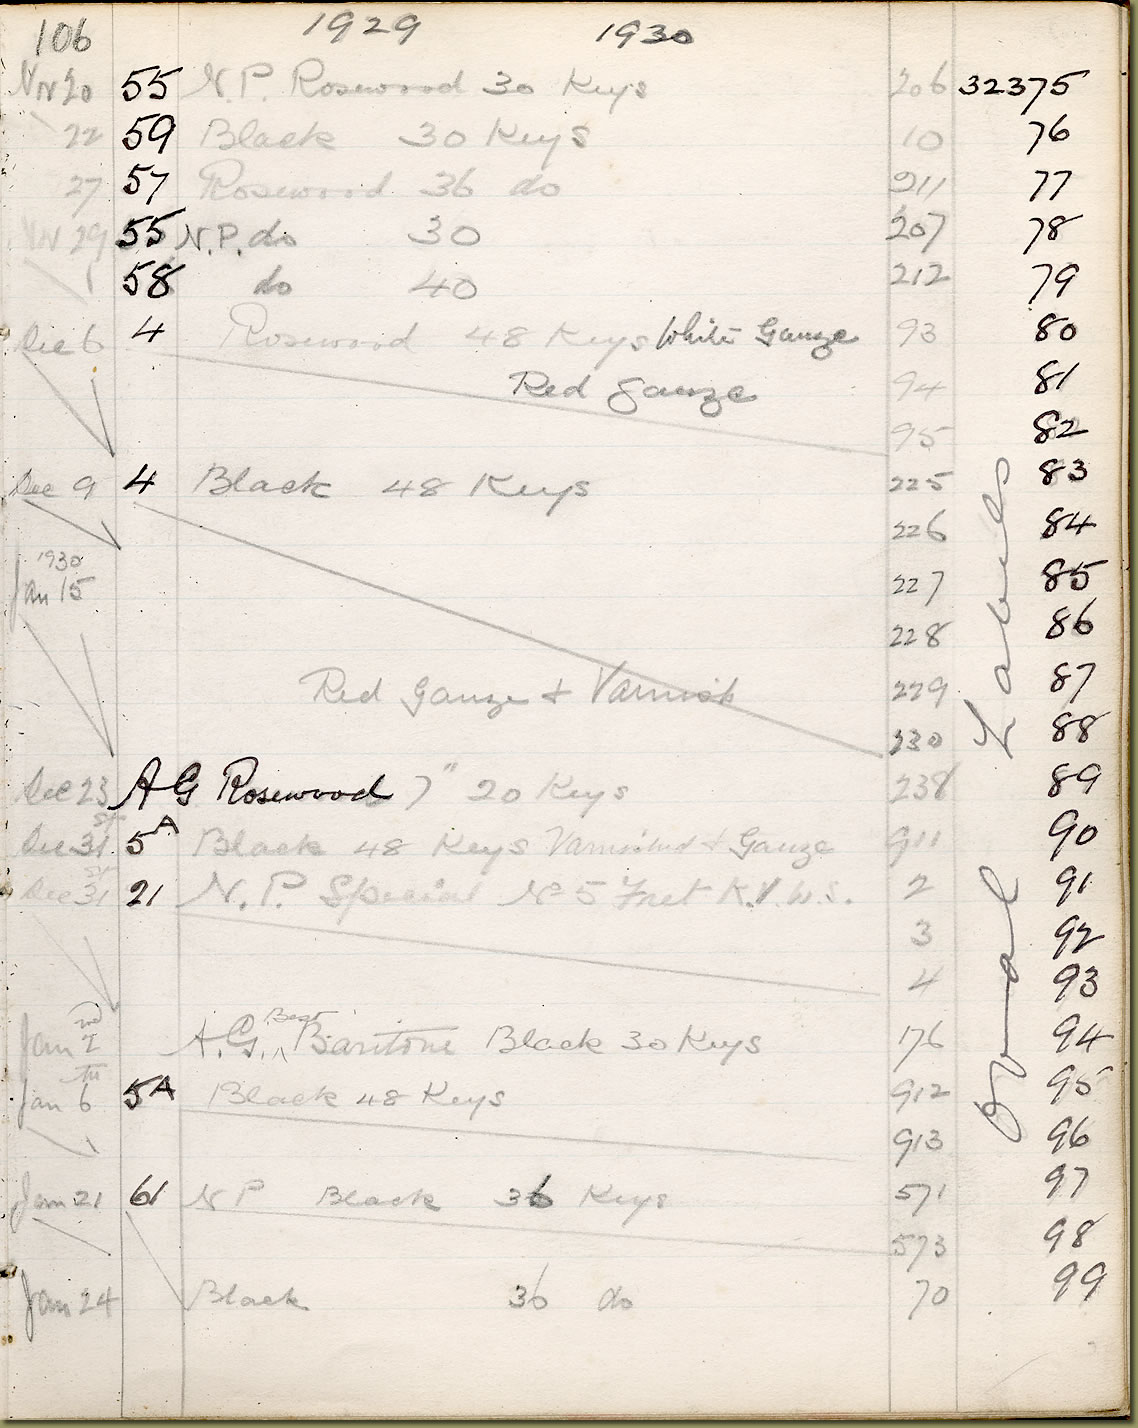 106 1929 1930
Nov 20 55 N.P. Rosewood 30 Keys 206 32375
22 59 Black 30 Keys 10 76
27 57 Rosewood 36 do 211 77
Nov 29 55 N.P. do 30 207 78
1 58 do 40 212 79
Dec 6 4 Rosewood 48 Keys White Gauze 93 80
Red Gauze 94 81
95 82
Dec 9 4 Black 48 Keys 225 83
226 84
1930
Jan 15 227 85
228 86
Red Gauze + Varnish 229 87
230 88
Dec 23 AG Rosewood 7" 20 Keys 238 89
Dec 31st 5A Black 48 Keys Varnished + Gauze 911 90
Dec 31st 21 N.P. Special No 5 Fret K.V.W.S. 2 91
3 92
4 93
Jan 2nd A.G. Best Baritone Black 30 Keys 176 94
Jan 6th 5A Black 48 Keys 912 95
913 96
Jan 21 61 N P Black 36 Keys 571 97
573 98
Jan 24 Black 36 do 70 99
Oval Labels